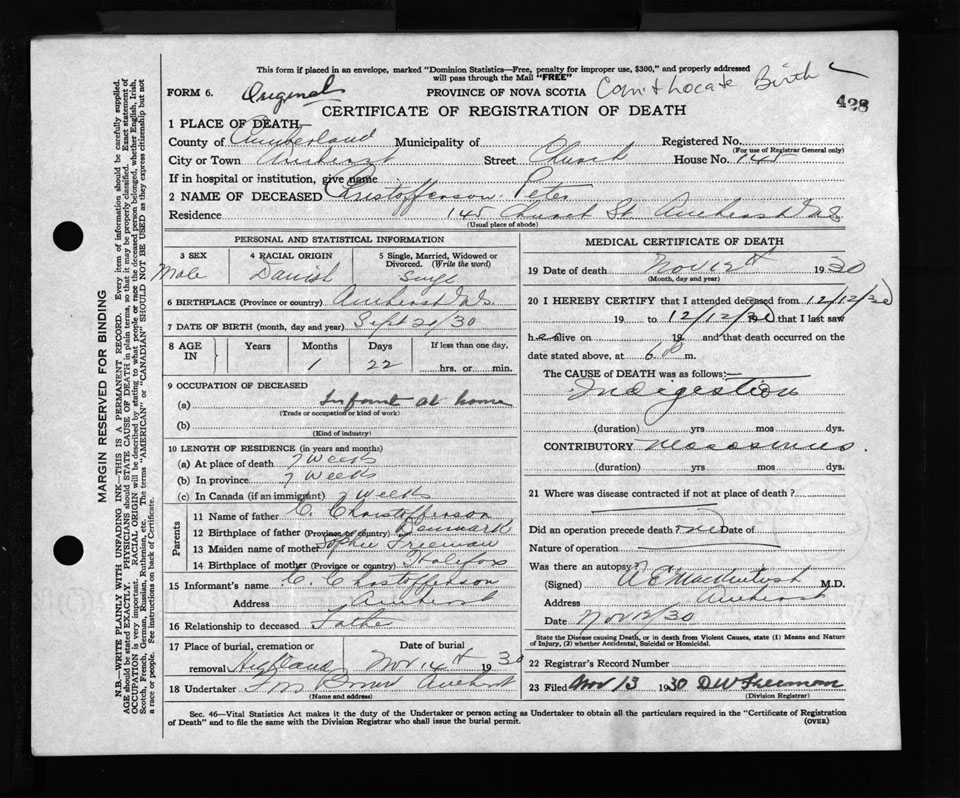 This form if placed in an envelope, marked "Dominion Statistics—Free, penalty for improper use, $300," and properly addressed
will pass through the Mail "FREE"
FORM 6. Original PROVINCE OF NOVA SCOTIA Can't Locate Birth
428
CERTIFICATE OF REGISTRATION OF DEATH
1 PLACE OF DEATH—
County of Cumberland Municipality of Registered No.
(For use of Registrar General only)
City or Town Amherst Street Church House No. 145
If in hospital or institution, give name
2 NAME OF DECEASED Christofferson Peter
Residence 145 Church St. Amherst N.S.
(Usual place of abode)
PERSONAL AND STATISTICAL INFORMATION
3 SEX 4 RACIAL ORIGIN 5 Single, Married, Widowed or
Divorced. (Write the word)
Male Danish Single
6 BIRTHPLACE (Province or country) Amherst N.S.
7 DATE OF BIRTH (month, day and year) Sept 20/30
8 AGE IN Years Months Days If less than one day,
1 22 hrs. or min.
9 OCCUPATION OF DECEASED
(a) Infant at home
(Trade or occupation or kind of work)
(b)
(Kind of industry)
10 LENGTH OF RESIDENCE (in years and months)
(a) At place of death 7 Weeks
(b) In province 7 Weeks
(c) In Canada (if an immigrant) 7 Weeks
Parents
11 Name of father C. Christofferson
12 Birthplace of father (Province or country) Denmark
13 Maiden name of mother Sophie Freeman
14 Birthplace of mother (Province or country) Halifax
15 Informant's name C. Christofferson
Address Amherst
16 Relationship to deceased Father
17 Place of burial, cremation or Date of burial
removal Highland Nov 14th 1930
18 Undertaker Amherst
(Name and address)
MEDICAL CERTIFICATE OF DEATH
19 Date of death Nov 12th 1930
(Month, day and year)
20 I HEREBY CERTIFY that I attended deceased from 12/12/30
19 to 12/12/30 that I last saw
h alive on 19 and that death occurred on the
date stated above, at 6 m.
The CAUSE of DEATH was as follows:—
Indigestion
(duration) yrs mos dys.
CONTRIBUTORY
(duration) yrs mos dys.
21 Where was disease contracted if not at place of death?
Did an operation precede death? Date of
Nature of operation
Was there an autopsy?
(Signed) A E MacKintosh M.D.
Address Amherst
Date Nov 12/30
State the Disease causing Death, or in death from Violent Causes, state (1) Means and Nature
of Injury, (2) whether Accidental, Suicidal or Homicidal.
22 Registrar's Record Number
23 Filed Nov 13 1930 D W Freeman
(Division Registrar)
Sec. 46—Vital Statistics Act makes it the duty of the Undertaker or person acting as Undertaker to obtain all the particulars required in the "Certificate of Registration
of Death" and to file the same with the Division Registrar who shall issue the burial permit. (OVER)
MARGIN RESERVED FOR BINDING
N.B.—WRITE PLAINLY WITH UNFADING INK—THIS IS A PERMANENT RECORD. Every item of information should be carefully supplied.
AGE should be stated EXACTLY. PHYSICIANS should STATE CAUSE OF DEATH in plain terms, so that it may be properly classified. Exact statement of
OCCUPATION is very important. RACIAL ORIGIN will be described by stating to what people or race the deceased person belonged, whether English, Irish,
Scotch, French, German, Russian, Ruthenian, etc. The terms "AMERICAN" or "CANADIAN" SHOULD NOT BE USED as they express citizenship but not
a race or people. See instructions on back of Certificate.